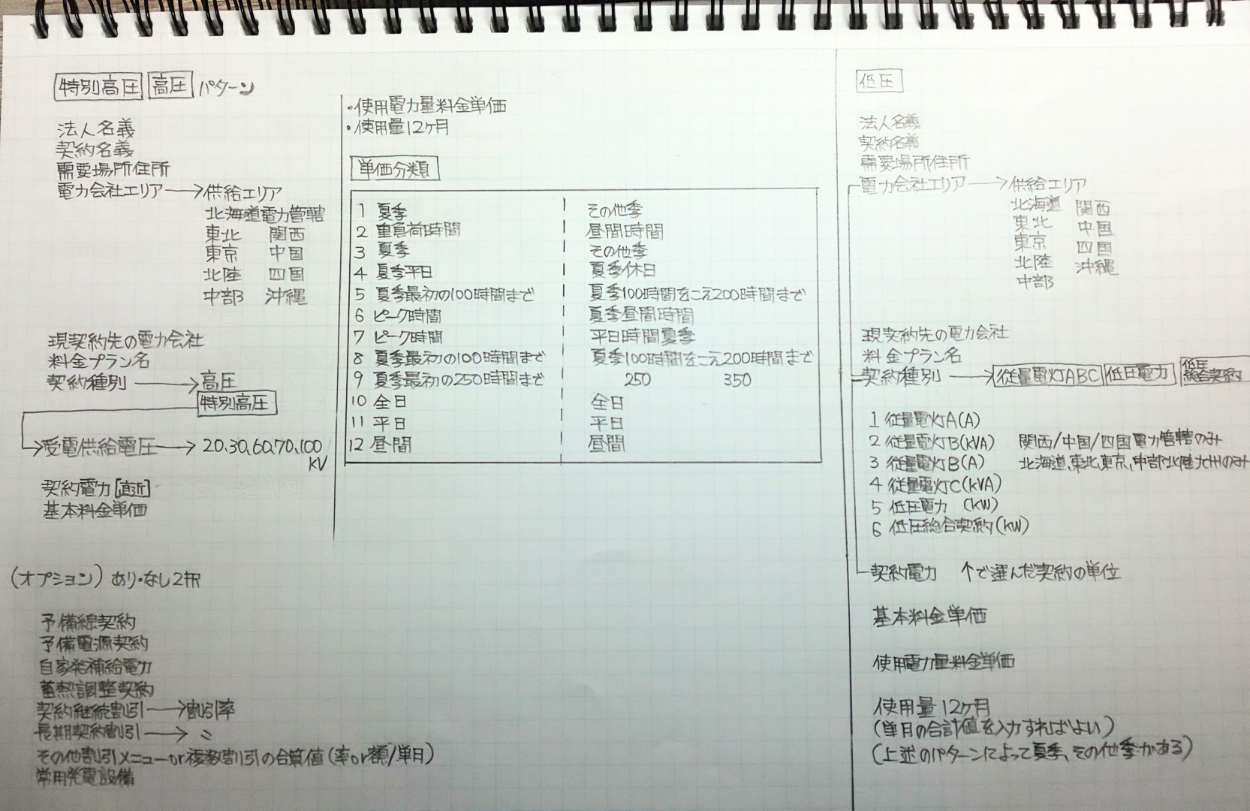 特別高圧 高圧 パターン
法人名義
契約名義
需要場所住所
電力会社エリア→供給エリア
北海道電力管轄
東北 関西
東京 中国
北陸 四国
中部 沖縄
現契約先の電力会社
料金プラン名
契約種別→高圧
特別高圧
→受電供給電圧→20,30,60,70,100
KV
契約電力[直近]
基本料金単価
(オプション)あり・なし2択
予備線契約
予備電源契約
自家発補給電力
蓄熱調整契約
契約継続割引→割引率
長期契約割引→〃
その他割引メニューor複数割引の合算値(率or額/単月)
常用発電設備
・使用電力量料金単価
・使用量12ヶ月
単価分類
1 夏季 その他季
2 重負荷時間 昼間時間
3 夏季 その他季
4 夏季平日 夏季休日
5 夏季最初の100時間まで 夏季100時間をこえ200時間まで
6 ピーク時間 夏季昼間時間
7 ピーク時間 平日時間夏季
8 夏季最初の100時間まで 夏季100時間をこえ200時間まで
9 夏季最初の250時間まで 250 350
10 全日 全日
11 平日 平日
12 昼間 昼間
低圧
法人名義
契約名義
需要場所住所
電力会社エリア→供給エリア
北海道 関西
東北 中国
東京 四国
北陸 沖縄
中部
現契約先の電力会社
料金プラン名
契約種別→従量電灯ABC 低圧電力 低圧総合契約
1 従量電灯A(A)
2 従量電灯B(KVA) 関西/中国/四国電力管轄のみ
3 従量電灯B(A) 北海道,東北,東京,中部,北陸,九州のみ
4 従量電灯C(KVA)
5 低圧電力 (KW)
6 低圧総合契約(KW)
契約電力 ↑で選んだ契約の単位
基本料金単価
使用電力量料金単価
使用量12ヶ月
(単月の合計値を入力すればよい)
(上述のパターンによって夏季、その他季がある)